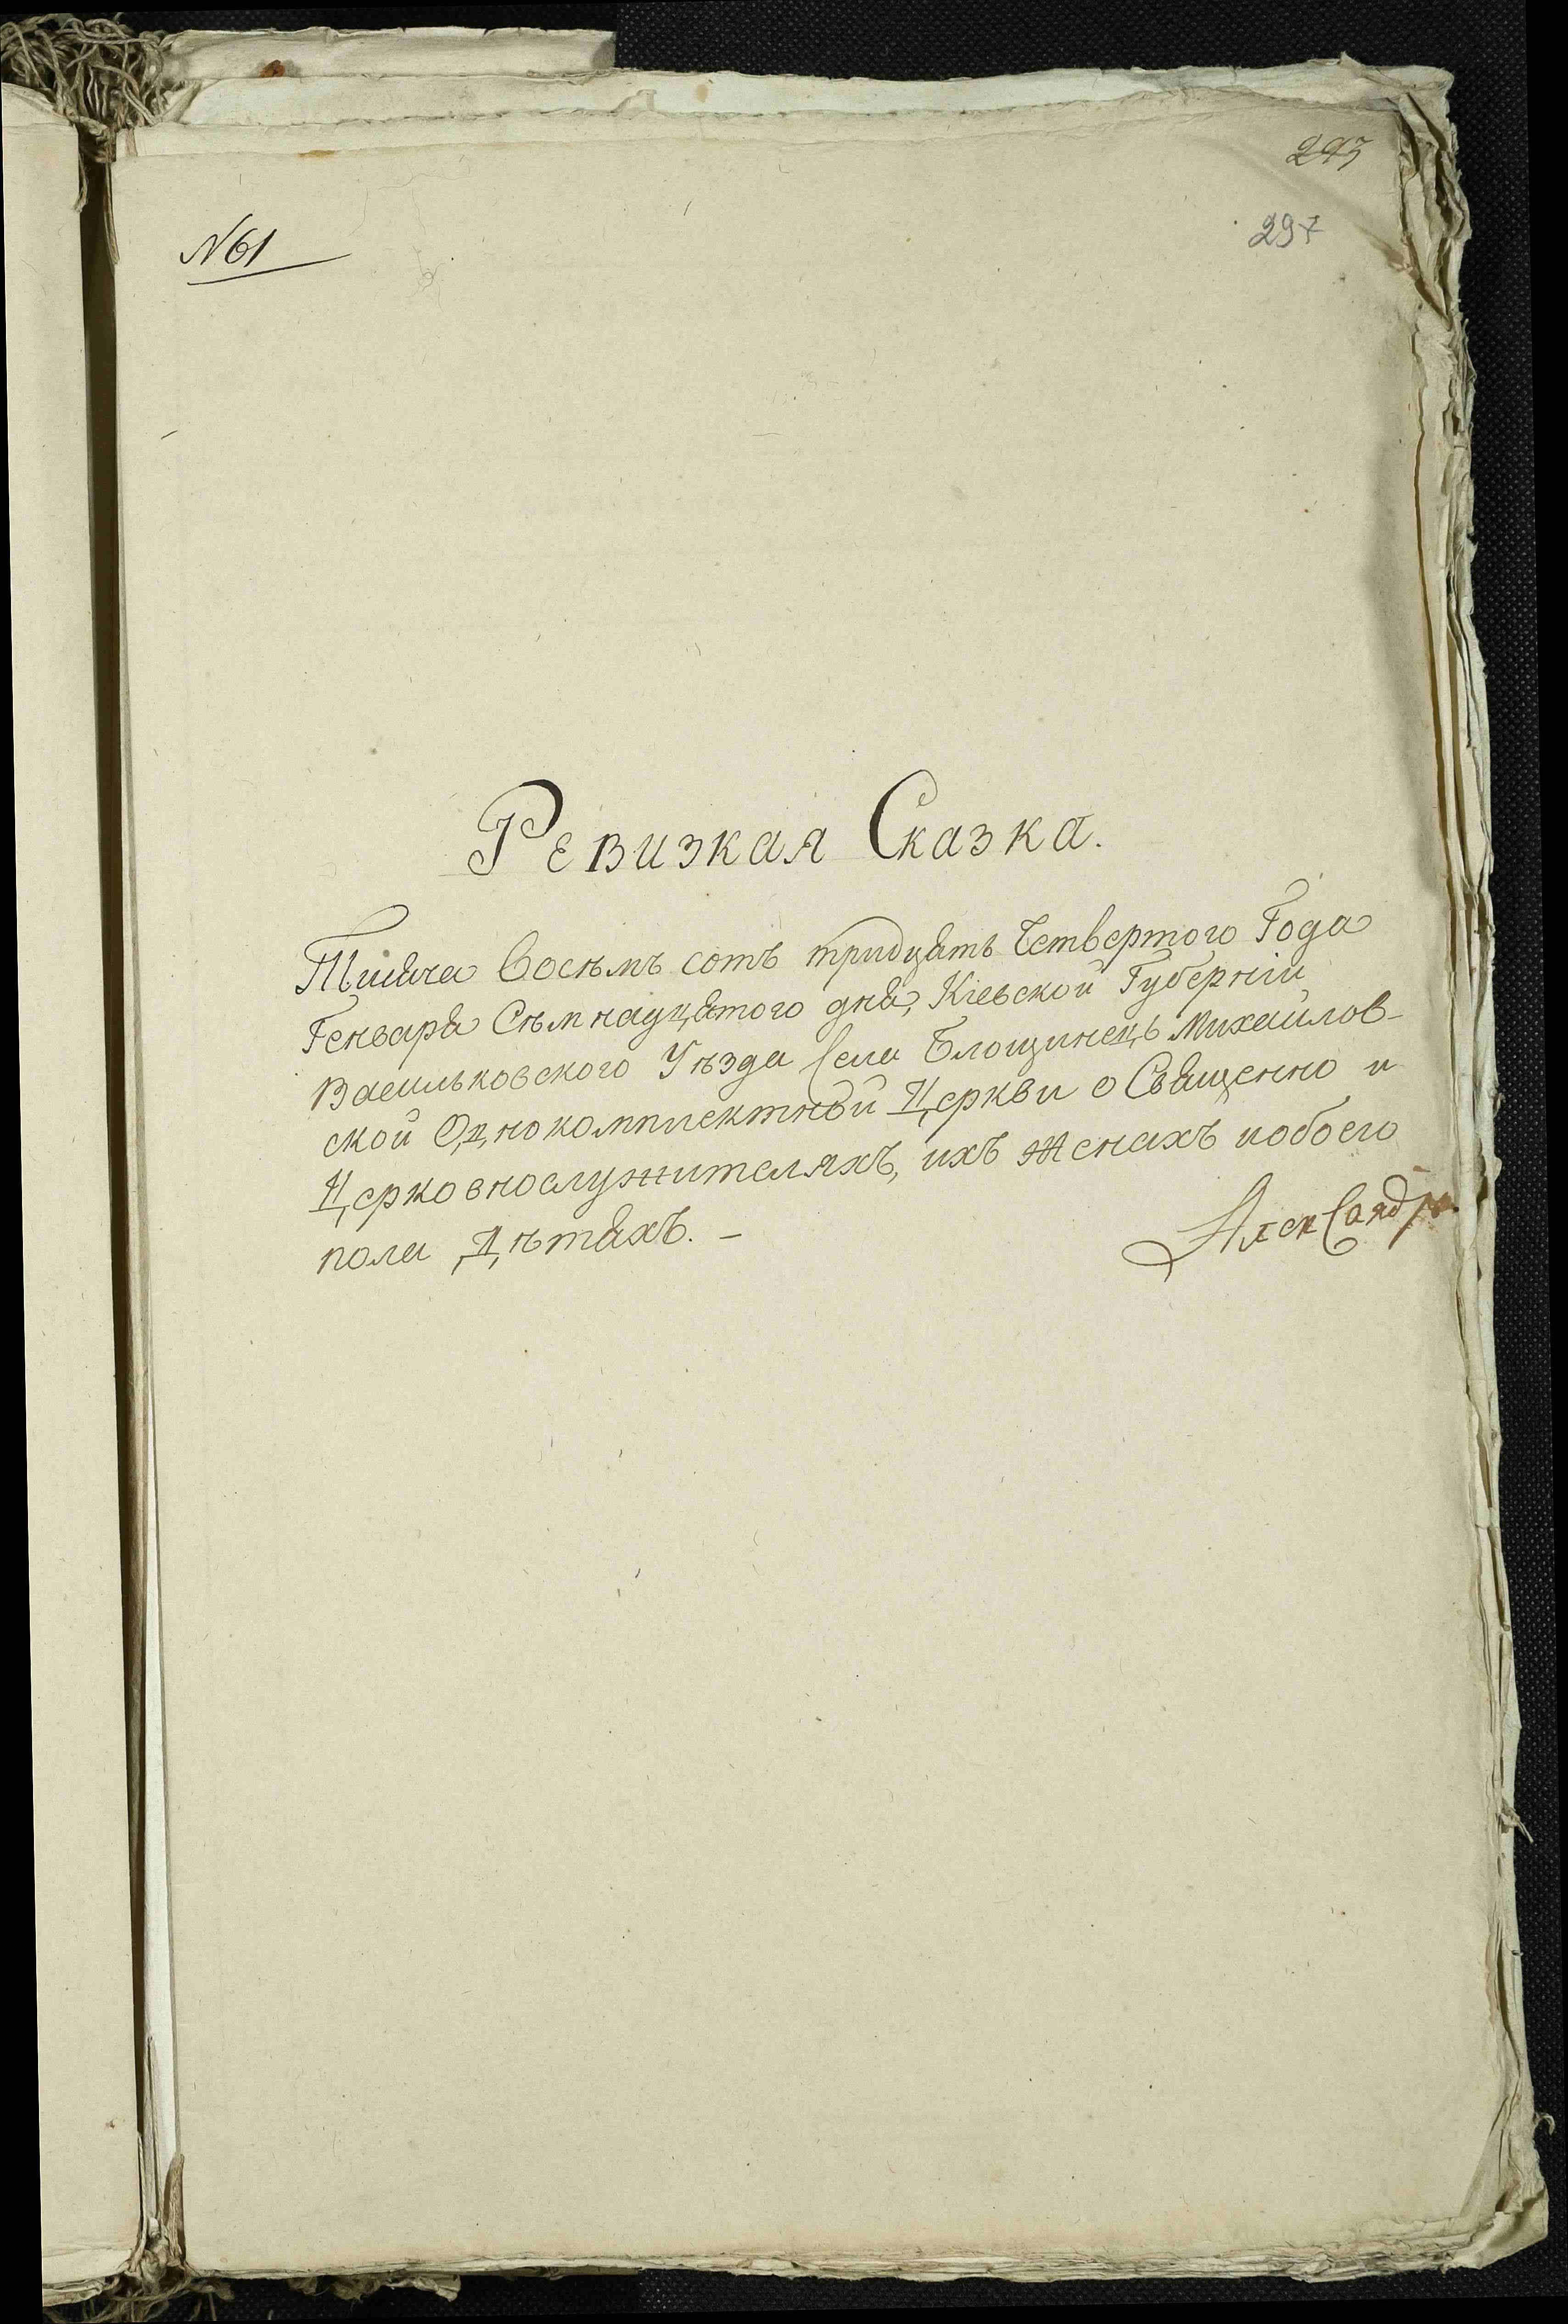 293
297
N61
Ревизкая Сказка.
Тисяча Восѣмъ сотъ тридцять Четвертого Года
Генваря Сѣмнадцятого дня, Кіевской Губерніи
Васильковского Уѣзда Села Блощинець Михайлов-
ской Однокомплектной Церкви о Священно и
Церковнослужителяхъ, ихъ Женахъ иобоего
пола Дѣтяхъ. –
АлекСандр